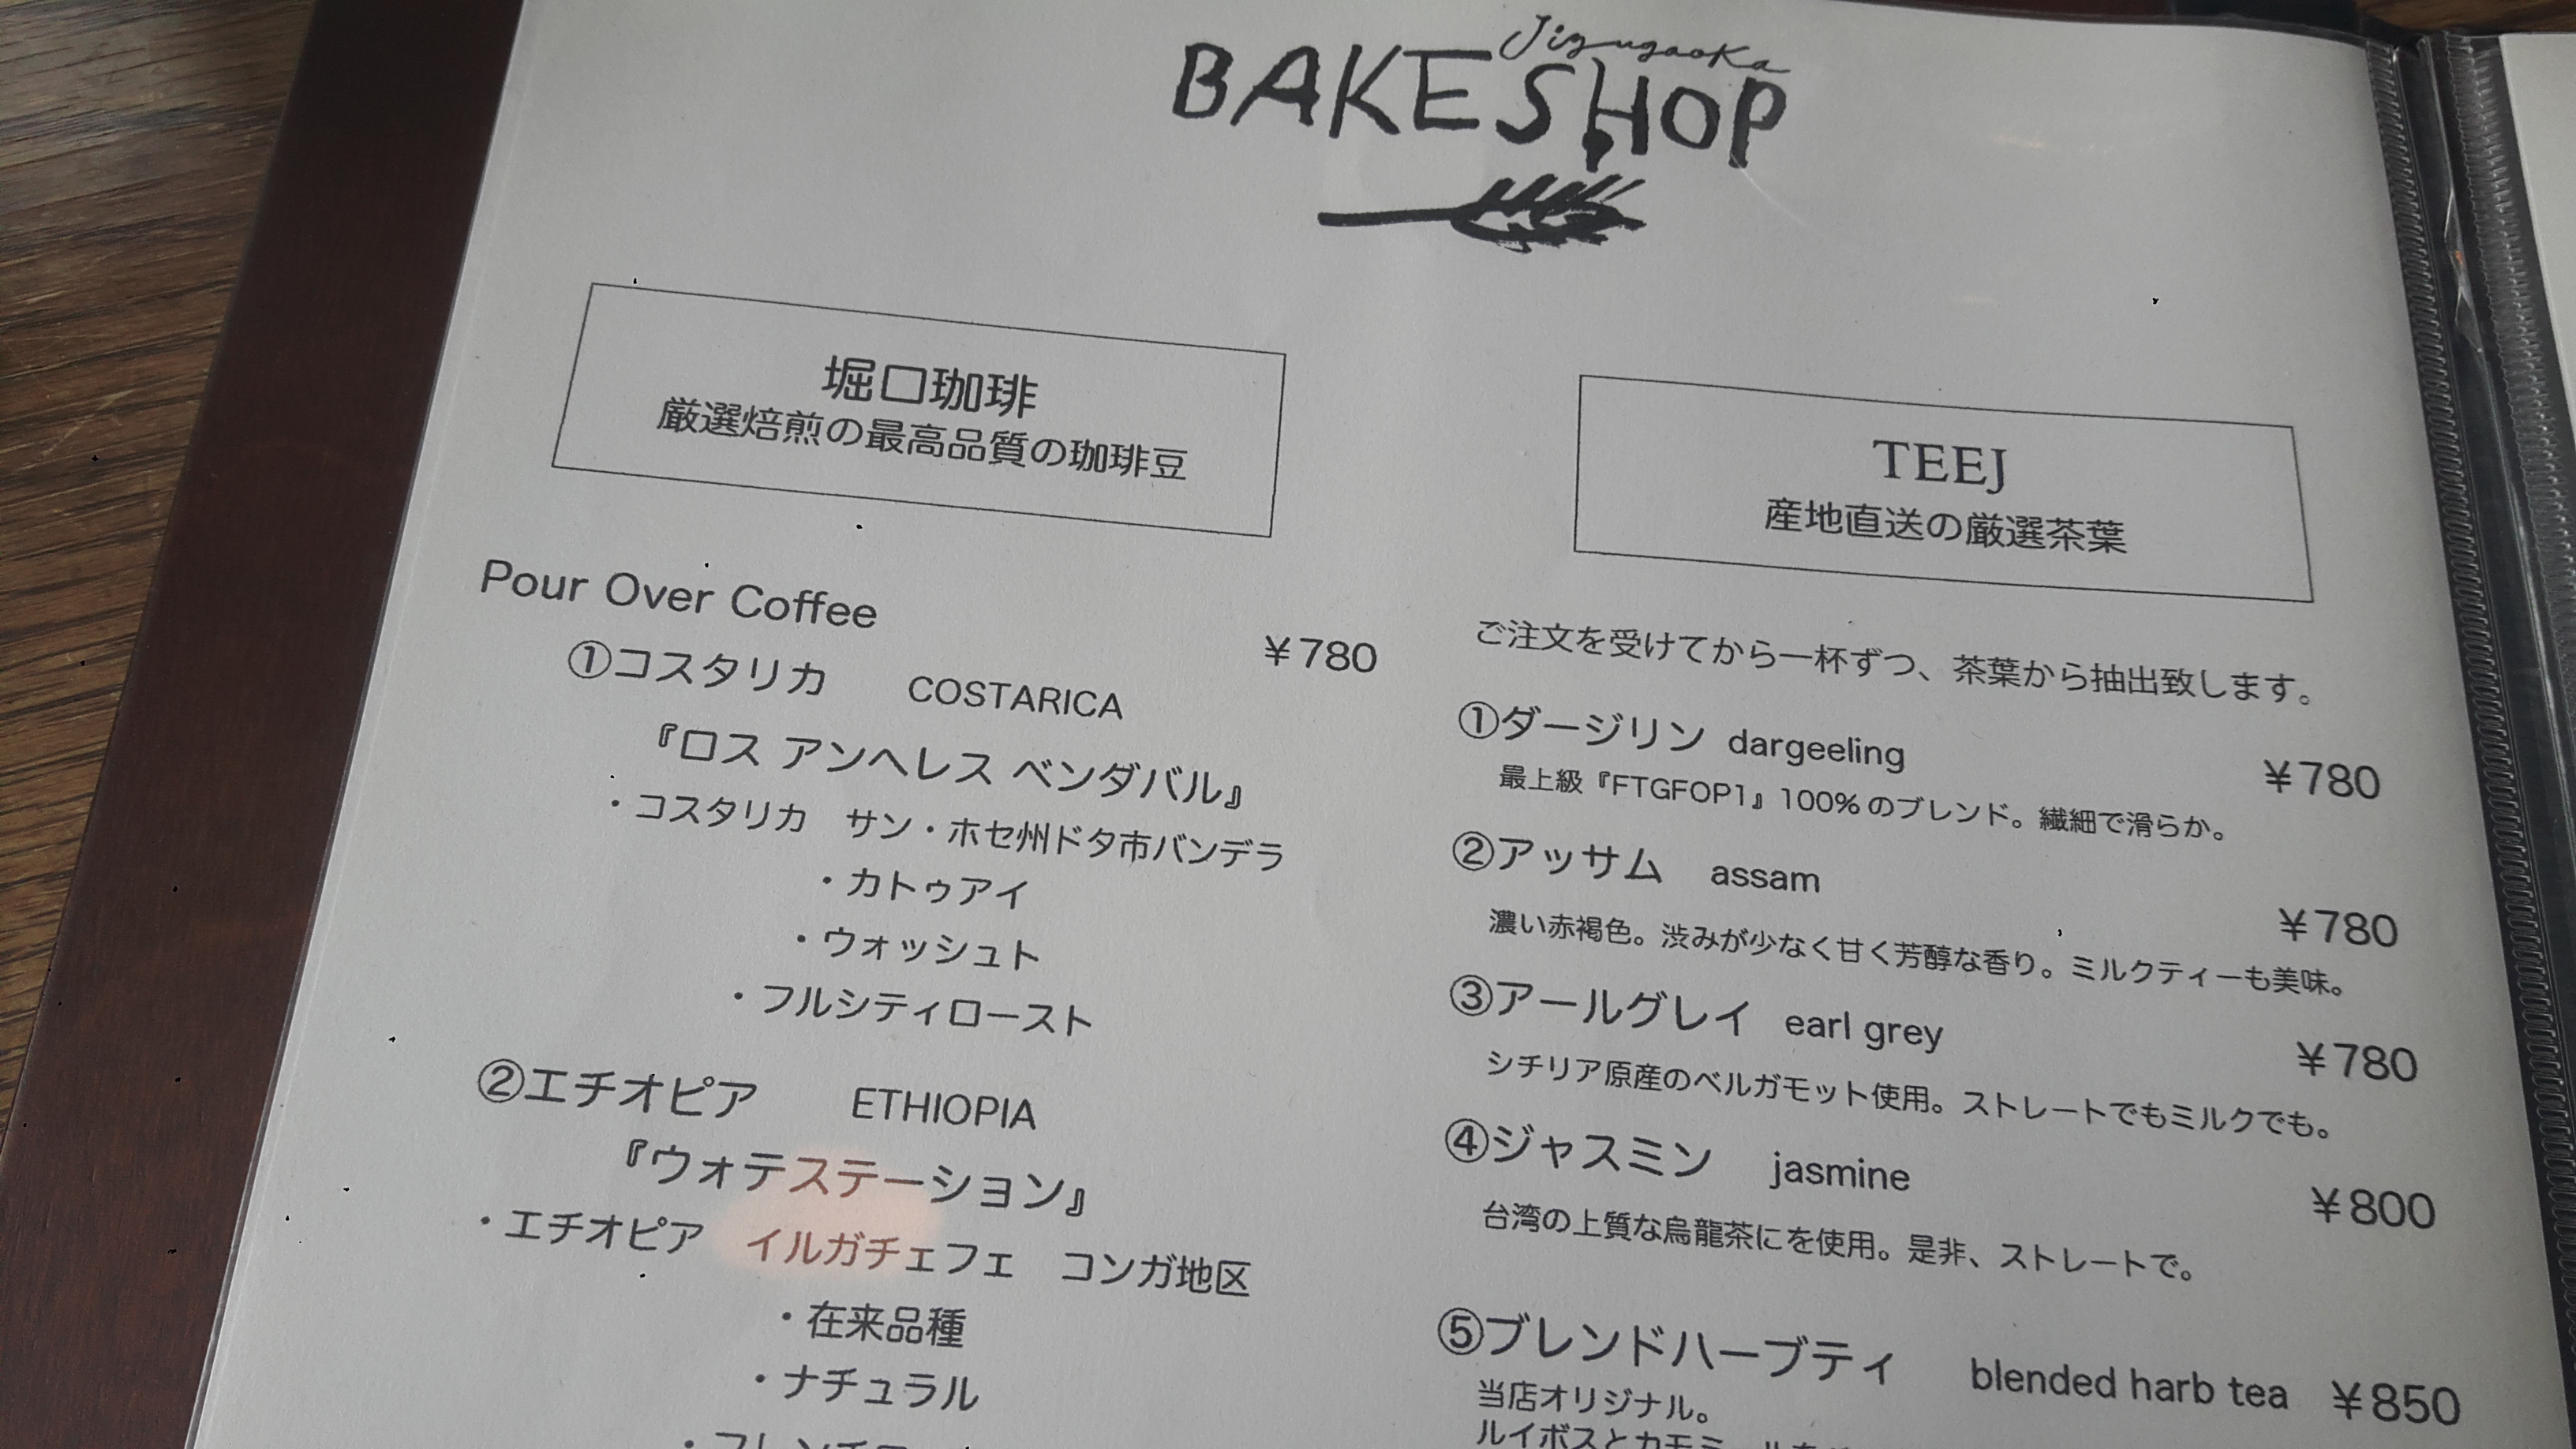 Jiyugaoka
BAKESHOP
堀口珈琲
厳選焙煎の最高品質の珈琲豆
Pour Over Coffee
¥780
①コスタリカ COSTARICA
『ロス アンヘレス ベンダバル』
・コスタリカ サン・ホセ州ドタ市バンデラ
・カトゥアイ
・ウォッシュト
・フルシティロースト
②エチオピア ETHIOPIA
『ウォテステーション』
・エチオピア イルガチェフェ コンガ地区
・在来品種
・ナチュラル
TEEJ
産地直送の厳選茶葉
ご注文を受けてから一杯ずつ、茶葉から抽出致します。
①ダージリン dargeeling ¥780
最上級『FTGFOP1』100%のブレンド。繊細で滑らか。
②アッサム assam ¥780
濃い赤褐色。渋みが少なく甘く芳醇な香り。ミルクティーも美味。
③アールグレイ earl grey ¥780
シチリア原産のベルガモット使用。ストレートでもミルクでも。
④ジャスミン jasmine ¥800
台湾の上質な烏龍茶にを使用。是非、ストレートで。
⑤ブレンドハーブティ blended harb tea ¥850
当店オリジナル。
ルイボスとカモミール